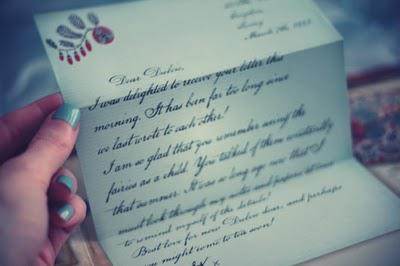 March 7th, 1955
Dear Dulcie,
I was delighted to receive your letter this
morning. It has been far too long since
we last wrote to each other!
I am so glad that you remember seeing the
fairies as a child. You talked of them constantly
that summer. It was so long ago now that I
must look through my notes and papers
to remind myself of the details!
Best love for now Dulcie dear, and perhaps
you might come to tea soon!